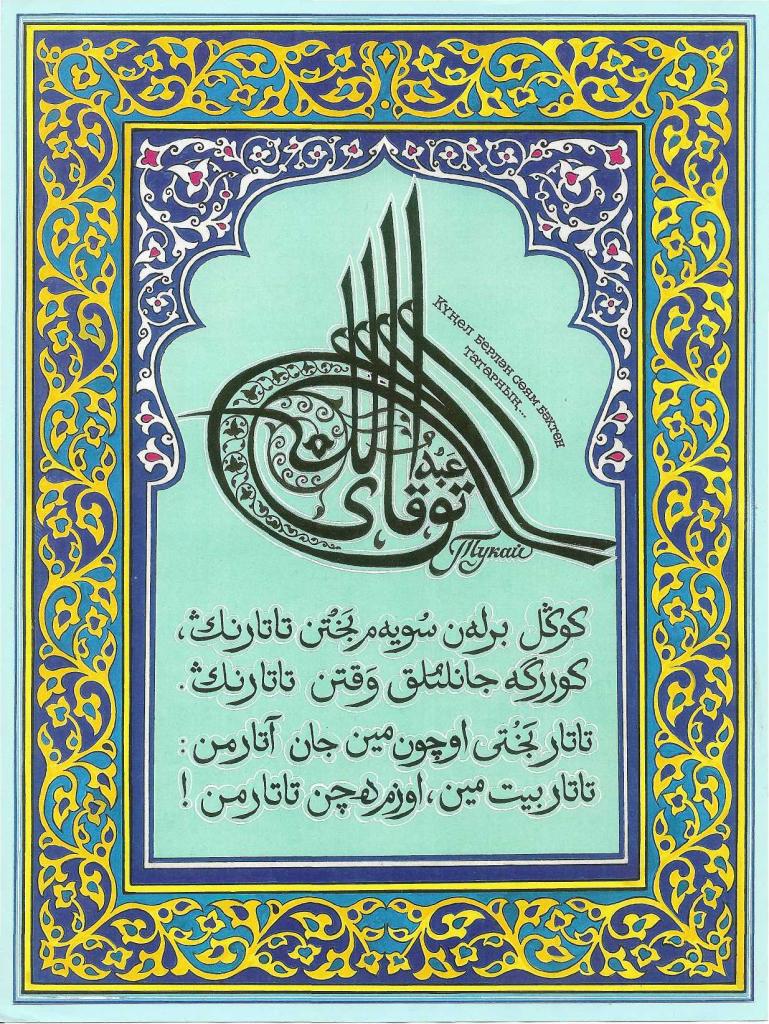 Күңел берлән сөям бәхтен
татарның...
عبدالله
توقای
Тукай
كوڭل برلەن سویەم بَخْتن تاتارنڭ،
كوررگە جانلىلق وَقتن تاتارنڭ.
تاتار بَخْتی اوچون مین جان آتارمن :
تاتار بیت مین، اوزم دە چن تاتارمن !